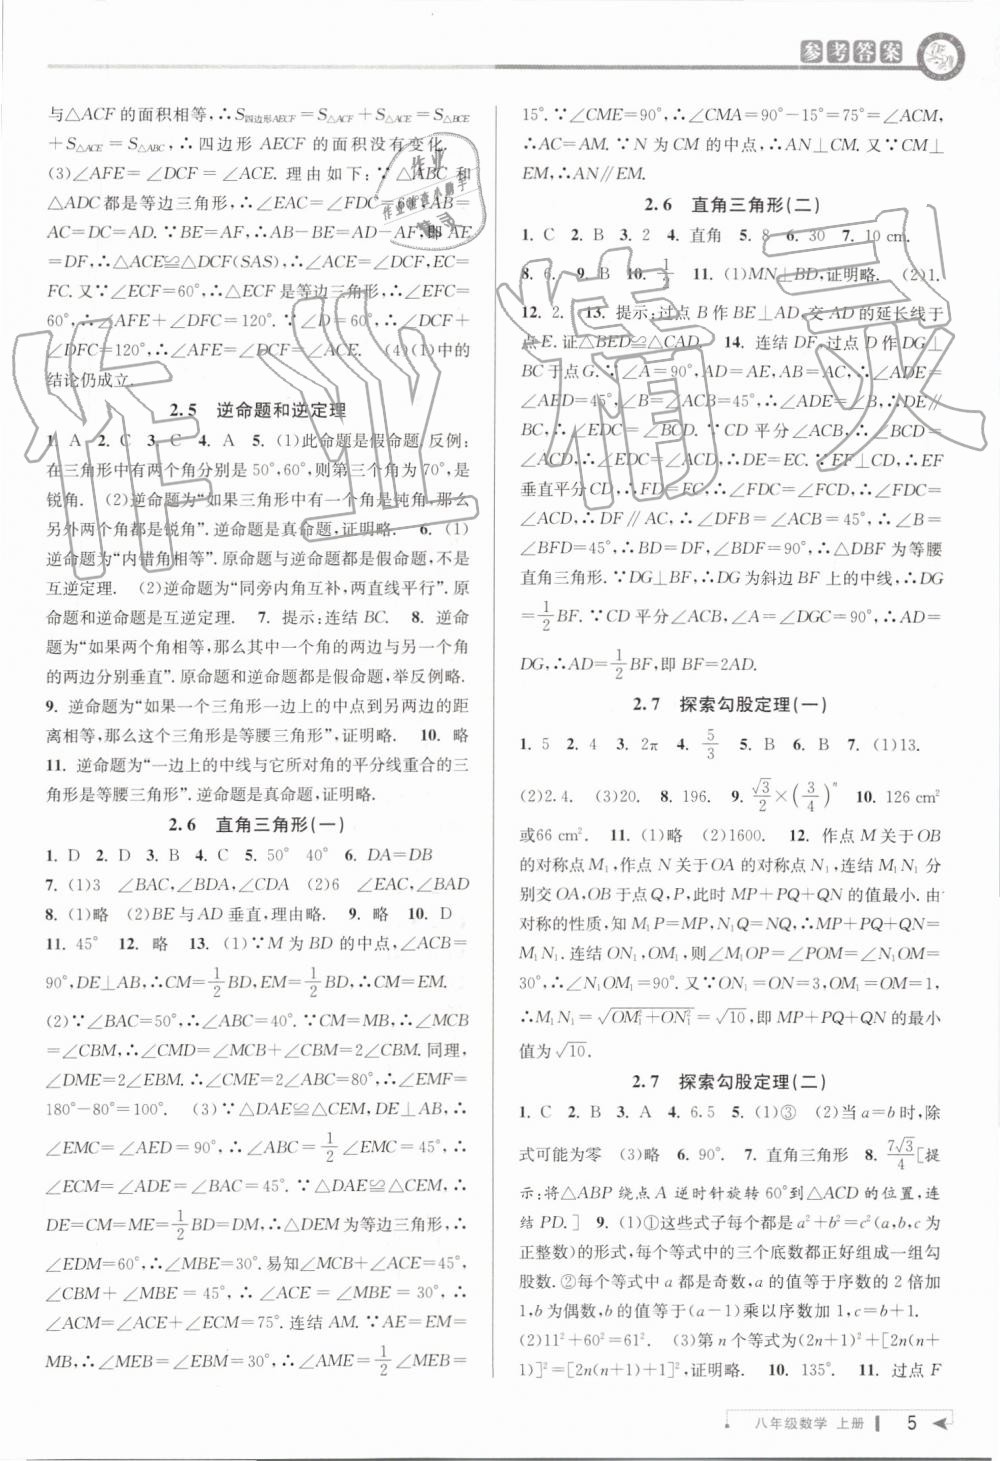 参考答案
与△ACF的面积相等,∴S四边形AECF=S△ACF+S△ACE=S△BCE
+S△ACE=S△ABC,∴四边形AECF的面积没有变化.
(3)∠AFE=∠DCF=∠ACE.理由如下:∵△ABC和
△ADC都是等边三角形,∴∠EAC=∠FDC=60°,AB=
AC=DC=AD.∵BE=AF,∴AB-BE=AD-AF,即AE
=DF,∴△ACE≌△DCF(SAS),∴∠ACE=∠DCF,EC=
FC.又∵∠ECF=60°,∴△ECF是等边三角形,∴∠EFC=
60°,∴∠AFE+∠DFC=120°.∵∠D=60°,∴∠DCF+
∠DFC=120°,∴∠AFE=∠DCF=∠ACE. (4)(1)中的
结论仍成立.
2.5 逆命题和逆定理
1. A 2. C 3. C 4. A 5. (1)此命题是假命题.反例:
在三角形中有两个角分别是50°,60°,则第三个角为70°,是
锐角. (2)逆命题为“如果三角形中有一个角是钝角,那么
另外两个角都是锐角”.逆命题是真命题,证明略. 6. (1)
逆命题为“内错角相等”.原命题与逆命题都是假命题,不是
互逆定理. (2)逆命题为“同旁内角互补,两直线平行”.原
命题和逆命题是互逆定理. 7. 提示:连结BC. 8. 逆命题
为“如果两个角相等,那么其中一个角的两边与另一个角
的两边分别垂直”.原命题和逆命题都是假命题,举反例略.
9. 逆命题为“如果一个三角形一边上的中点到另两边的距
离相等,那么这个三角形是等腰三角形”,证明略. 10. 略
11. 逆命题为“一边上的中线与它所对角的平分线重合的三
角形是等腰三角形”.逆命题是真命题,证明略.
2.6 直角三角形(一)
1. D 2. D 3. B 4. C 5. 50° 40° 6. DA=DB
7. (1)3 ∠BAC,∠BDA,∠CDA (2)6 ∠EAC,∠BAD
8. (1)略 (2)BE与AD垂直,理由略. 9. 略 10. D
11. 45° 12. 略 13. (1)∵M为BD的中点,∠ACB=
90°,DE⊥AB,∴CM=1/2BD,EM=1/2BD,∴CM=EM.
(2)∵∠BAC=50°,∴∠ABC=40°.∵CM=MB,∴∠MCB
=∠CBM,∴∠CMD=∠MCB+∠CBM=2∠CBM.同理,
∠DME=2∠EBM.∴∠CME=2∠ABC=80°,∴∠EMF=
180°-80°=100°. (3)∵△DAE≌△CEM,DE⊥AB,∴
∠EMC=∠AED=90°,∴∠ABC=1/2∠EMC=45°,∴
∠ECM=∠ADE=∠BAC=45°.∵△DAE≌△CEM,∴
DE=CM=ME=1/2BD=DM,∴△DEM为等边三角形,∴
∠EDM=60°,∴∠MBE=30°.易知∠MCB+∠ACE=45°,
∠CBM+∠MBE=45°,∴∠ACE=∠MBE=30°,∴
∠ACM=∠ACE+∠ECM=75°.连结AM.∵AE=EM=
MB,∴∠MEB=∠EBM=30°,∴∠AME=1/2∠MEB=
15°.∵∠CME=90°,∴∠CMA=90°-15°=75°=∠ACM,
∴AC=AM.∵N为CM的中点,∴AN⊥CM.又∵CM⊥
EM,∴AN∥EM.
2.6 直角三角形(二)
1. C 2. B 3. 2 4. 直角 5. 8 6. 30 7. 10 cm.
8. 6. 9. B 10. 1/2 11. (1)MN⊥BD,证明略. (2)1.
12. 2. 13. 提示:过点B作BE⊥AD,交AD的延长线于
点E.证△BED≌△CAD. 14. 连结DF,过点D作DG⊥
BC于点G.∵∠A=90°,AD=AE,AB=AC,∴∠ADE=
∠AED=45°,∠B=∠ACB=45°,∴∠ADE=∠B,∴DE∥
BC,∴∠EDC=∠BCD.∵CD平分∠ACB,∴∠BCD=
∠ACD,∴∠EDC=∠ACD,∴DE=EC.∵CE=CF,∴EF
垂直平分CD,∴FD=FC,∴∠FDC=∠FCD,∴∠FDC=
∠ACD,∴DF∥AC,∴∠DFB=∠ACB=45°,∴∠B=
∠BFD=45°,∴BD=DF,∠BDF=90°,∴△DBF为等腰
直角三角形.∵DG⊥BF,∴DG为斜边BF上的中线,∴DG
=1/2BF.∵CD平分∠ACB,∠A=∠DGC=90°,∴AD=
DG,∴AD=1/2BF,即BF=2AD.
2.7 探索勾股定理(一)
1. 5 2. 4 3. 2π 4. 5/3 5. B 6. B 7. (1)13.
(2)2.4. (3)20. 8. 196. 9. √3/2×(3/4)ⁿ 10. 126 cm²
或66 cm². 11. (1)略 (2)1600. 12. 作点M关于OB
的对称点M₁,作点N关于OA的对称点N₁,连结M₁N₁分
别交OA,OB于点Q,P,此时MP+PQ+QN的值最小.由
对称的性质,知M₁P=MP,N₁Q=NQ,∴MP+PQ+QN=
M₁N₁.连结ON₁,OM₁,则∠M₁OP=∠POM=∠N₁OM=
30°,∴∠N₁OM₁=90°.又∵ON₁=ON=3,OM₁=OM=1,
∴M₁N₁=√(OM₁²+ON₁²)=√10,即MP+PQ+QN的最小
值为√10.
2.7 探索勾股定理(二)
1. C 2. B 3. A 4. 6.5 5. (1)③ (2)当a=b时,除
式可能为零 (3)略 6. 90°. 7. 直角三角形 8. 7√3/4[提
示:将△ABP绕点A逆时针旋转60°到△ACD的位置,连
结PD.] 9. (1)①这些式子每个都是a²+b²=c²(a,b,c为
正整数)的形式,每个等式中的三个底数都正好组成一组勾
股数.②每个等式中a都是奇数,a的值等于序数的2倍加
1,b为偶数,b的值等于(a-1)乘以序数加1,c=b+1.
(2)11²+60²=61². (3)第n个等式为(2n+1)²+[2n(n+
1)]²=[2n(n+1)+1]²,证明略. 10. 135°. 11. 过点F
八年级数学 上册 5
作业精灵